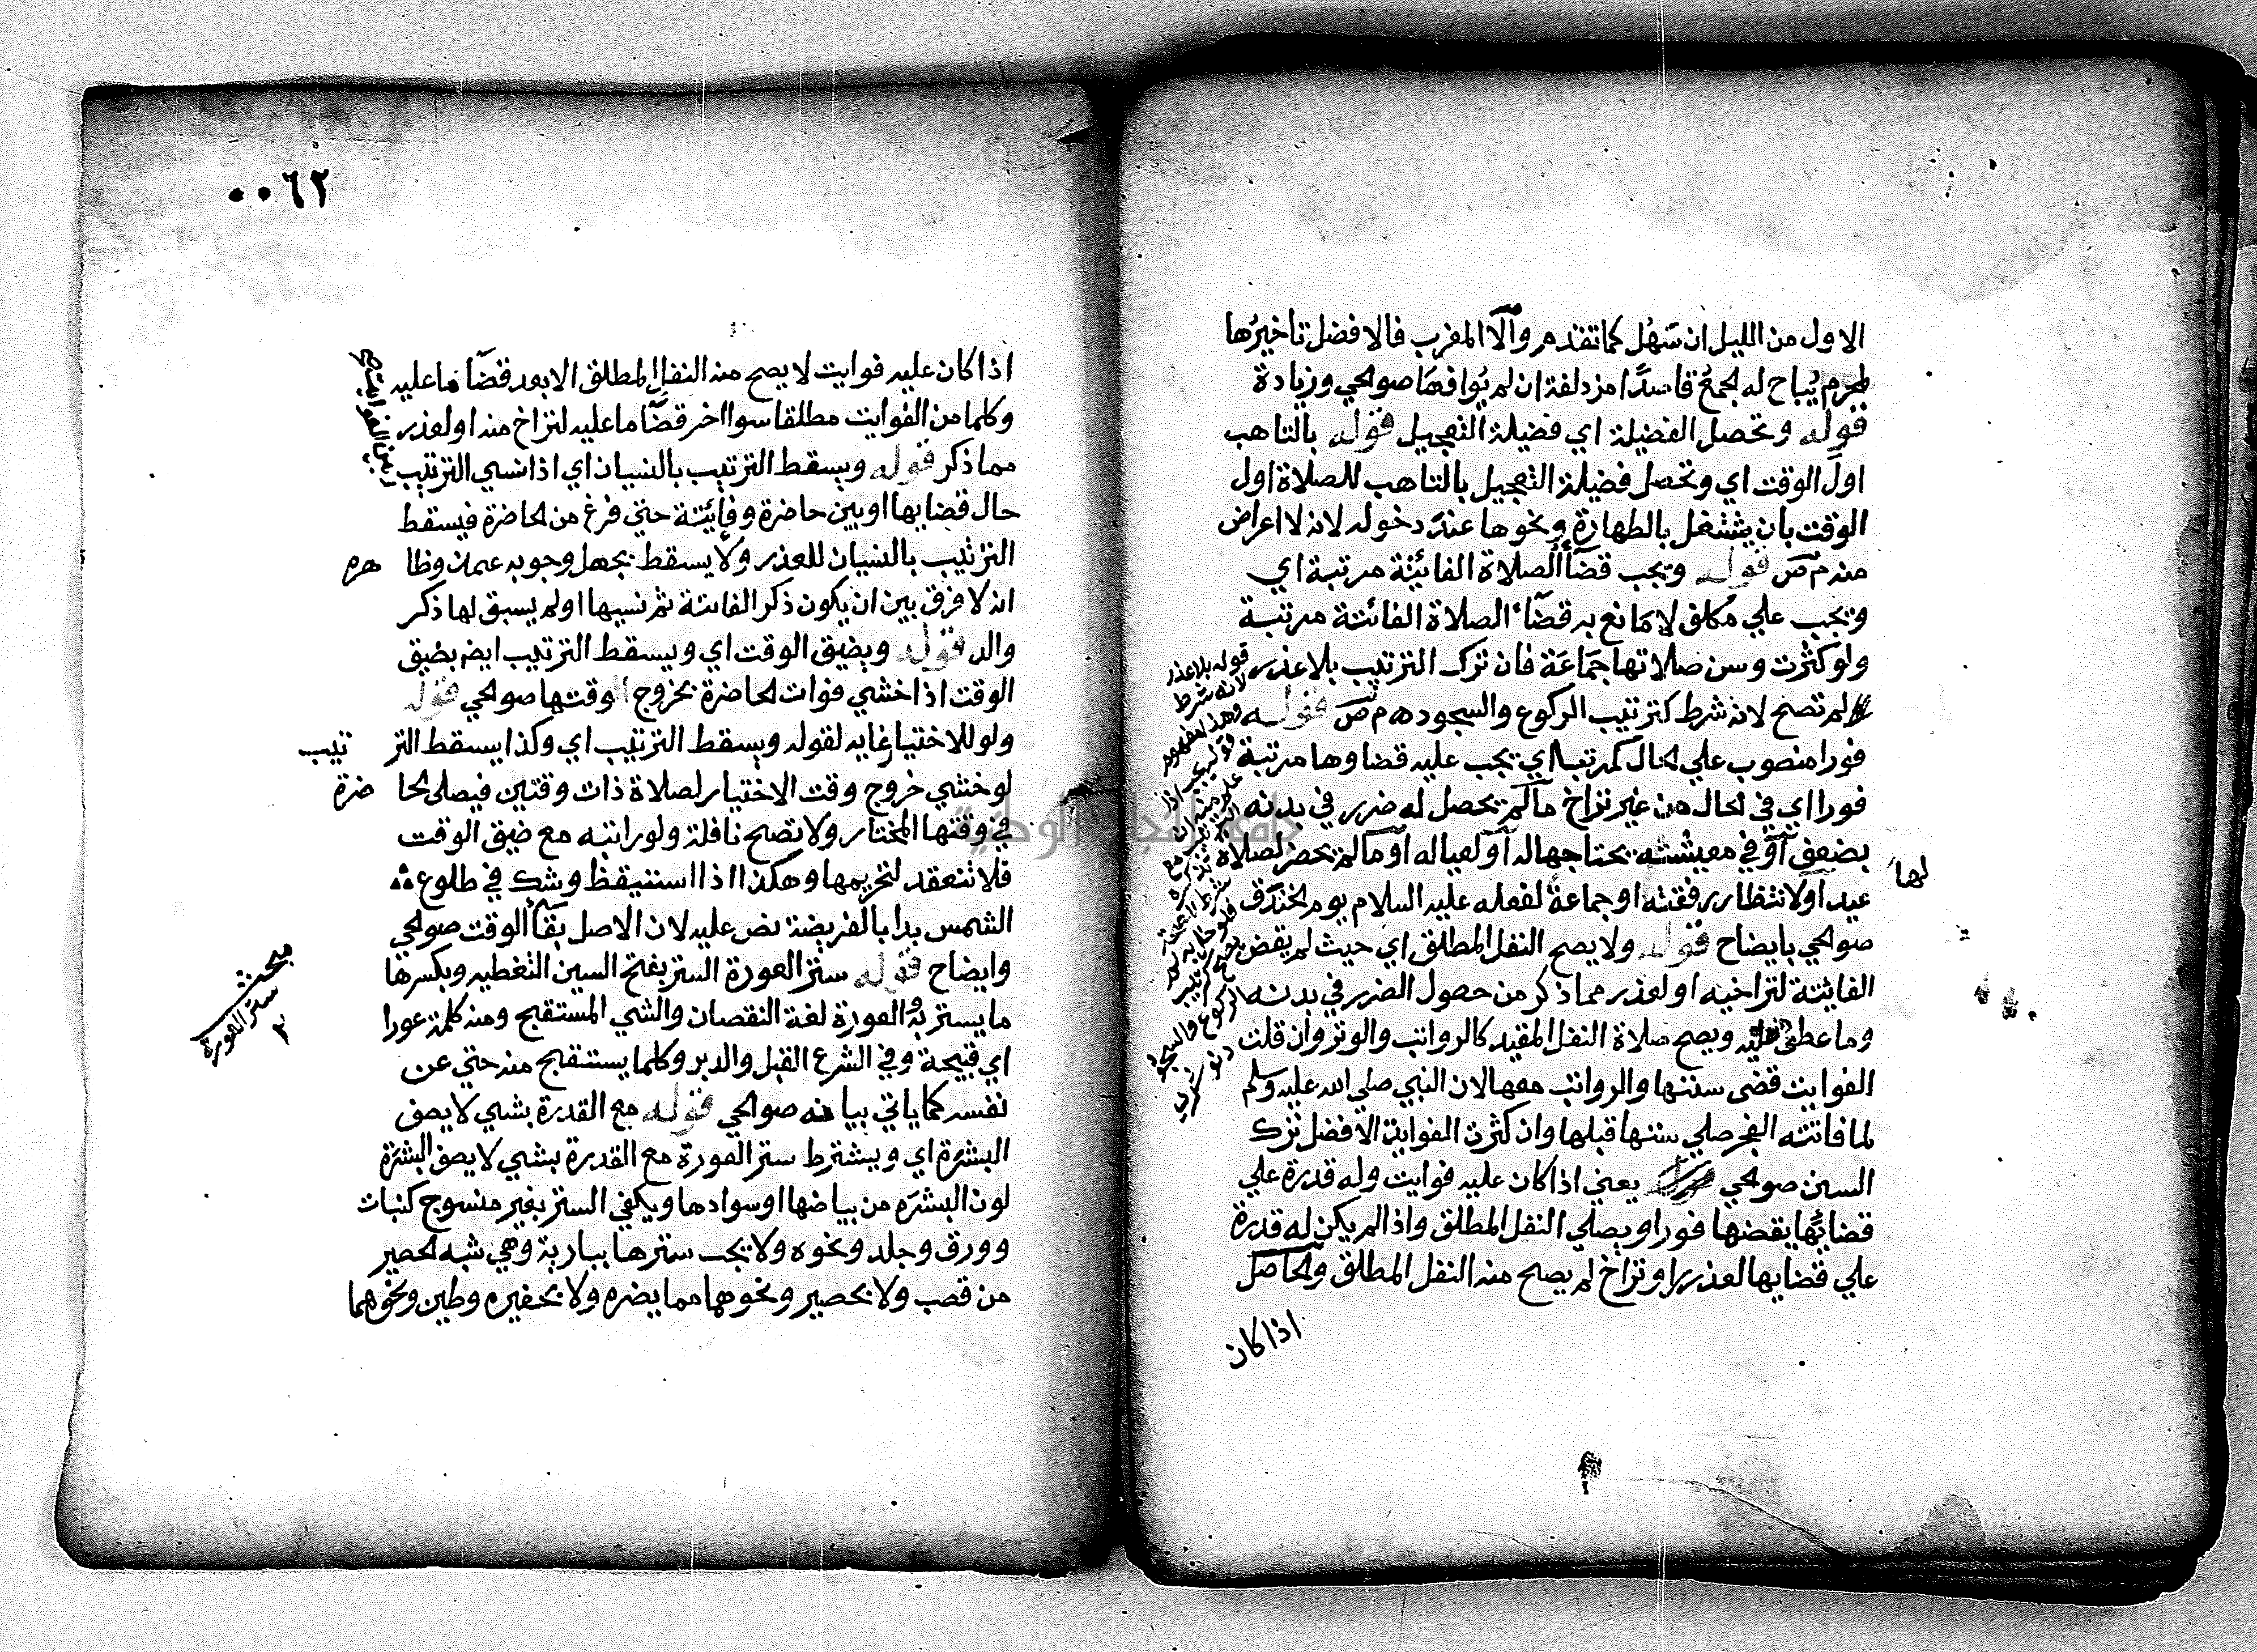 الاول من الليل ان سَهُل كما تقدم والّا المغرب فالافضل تاخيرُها
لمحرم يُباح له لجمعُ قاصدًا مزدلفة ان لم يُوافهَا صوالحي وزيادة
قوله وتحصل الفضيلة اي فضيلة التعجيل قوله بالتاهب
اول الوقت اي وتحصل فضيلة التعجيل بالتاهب للصلاة اول
الوقت بان يشتغل بالطهارة ونحوها عند دخوله لانه لا اعراض
منه م ص قوله ويجب قضاَ الصلاة الفائتة مرتبة اي
ويجب علي مكلف لا مانع به قضاَء الصلاة الفائتة مرتبة
ولو كثرت وسن صلاتها جمَاعَة فان ترك الترتيب بلا عذر
لم تصح لانه شرط كترتيب الركوع والسجود ه م ص قوله
فورا منصوب علي لحال كمرتبا اي يجب عليه قضاوها مرتبة
فورا اي في لحال من غير تراخ ما لم يحصل له ضرر في بدنه
بضعف او في معيشته يحتاجها له او لعياله او ما لم يحضر لصلاة
لها
عيد او لانتظار رفقته او جماعة لفعله عليه السلام يوم لخندق
صوالحي بايضاح قوله ولا يصح النفل المطلق اي حيث لم يقض
الفائتة لتراخيه او لعذر مما ذكر من حصول الضرر في بدنه
وما عطف عليه ويصح صلاة النفل المقيد كالرواتب والوتر وان قلت
الفوايت قضى سننها والرواتب معها لان النبي صلى الله عليه وسلم
لما فاتته الفجر صلي سنتها قبلها وان كثرت الفوايت الافضل ترك
السنن صوالحي يعني اذا كان عليه فوايت وله قدرة علي
قضائها يقضها فورا ويصلي النفل المطلق واذا لم يكن له قدرة
علي قضايها لعذر او تراخ لم يصح منه النفل المطلق ولحاصل
اذا كان
قوله بلا عذر
لانه شرط
٠٠٦٢
اذا كان عليه فوايت لا يصح منه النفل المطلق الا بعد قضاَ ما عليه
وكلما من الفوايت مطلقا سوا اخر قضاَ ما عليه لتراخ منه او لعذر
مما ذكر قوله ويسقط الترتيب بالنسيان اي اذا نسي الترتيب
حال قضايها او بين حاضرة وفائتة حتي فرغ من لحاضرة فيسقط
الترتيب بالنسيان للعذر ولا يسقط بجهل وجوبه عملا وظا هره
انه لا فرق بين ان يكون ذكر الفائتة ثم نسيها او لم يسبق لها ذكر
والد قوله وبضيق الوقت اي ويسقط الترتيب ايضا بضيق
الوقت اذا خشي فوات لحاضرة بخروج الوقتها صوالحي قوله
ولو للاختيار غايه لقوله ويسقط الترتيب اي وكذا يسقط التر تيب
لو خشي خروج وقت الاختيار لصلاة ذات وقتين فيصلى لحا ضرة
في وقتها المختار ولا تصح نافلة ولو راتبه مع ضيق الوقت
فلا تنعقد لتحريمها وهكذا اذا استيقظ وشك في طلوع
الشمس بدا بالفريضة نص عليه لان الاصل بقاَ الوقت صوالحي
وايضاح قوله ستر العورة الستر بفتح السين التغطيه وبكسرها
ما يستر به والعورة لغة النقصان والشي المستقبح ومنه كلمة عورا
اي قبيحة وفي الشرع القبل والدبر وكلما يستقبح منه حتي عن
نفسه كما ياتي بيانه صوالحي قوله مع القدرة بشي لا يصف
البشرة اي ويشترط ستر العورة مع القدرة بشي لا يصف البشرة
لون البشره من بياضها او سوادها ويكفي الستر بغير منسوج كنبات
وورق وجلد ونحوه ولا يجب سترها ببارية وهي شبه لحصير
من قصب ولا بحصير ونحوهما مما يضره ولا بحفيره وطين ونحوهما
مبحث
ستر العورة
٣
جامعة النجاح الوطنية